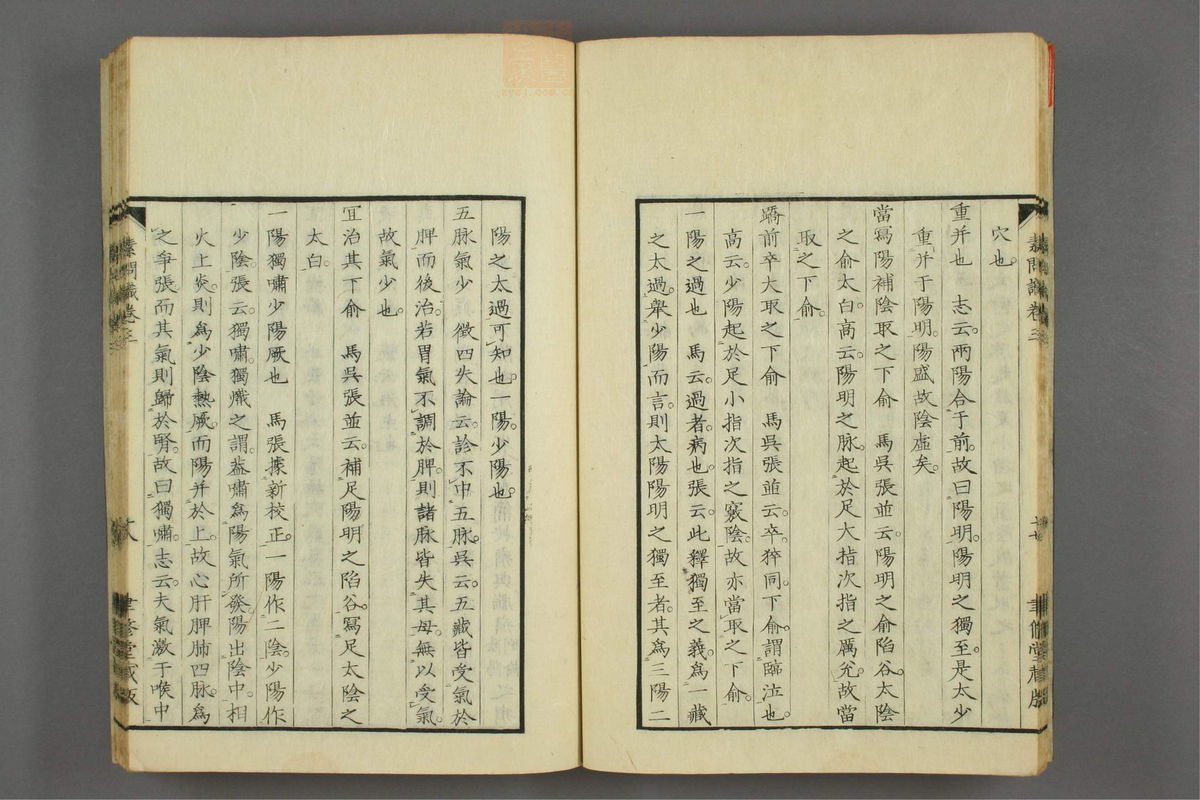 穴也。
重并也　志云。兩陽合于前。故曰陽明。陽明之獨至。是太少
重并于陽明。陽盛故陰虛矣。
當寫陽補陰取之下俞　馬吳張並云。陽明之俞陷谷。太陰
之俞太白。高云。陽明之脉。起於足大指次指之厲兌。故當
取之下俞。
蹻前卒大取之下俞　馬吳張並云。卒。猝同。下俞。謂臨泣也。
高云。少陽起於足小指次指之竅陰。故亦當取之下俞。
一陽之過也　馬云。過者。病也。張云。此釋獨至之義。爲一藏
之太過。舉少陽而言。則太陽陽明之獨至者。其爲三陽二
陽之太過可知也。一陽。少陽也。
五脉氣少　徵四失論云。診不中五脉。吳云。五藏皆受氣於
脾而後治。若胃氣不調於脾。則諸脉皆失其母。無以受氣。
故氣少也。
宜治其下俞　馬吳張並云。補足陽明之陷谷。寫足太陰之
太白。
一陽獨嘯少陽厥也　馬張據新校正。一陽作二陰。少陽作
少陰。張云。獨嘯。獨熾之謂。蓋嘯爲陽氣所發。陽出陰中。相
火上炎。則爲少陰熱厥。而陽并於上。故心肝脾肺四脉。爲
之爭張。而其氣則歸於腎。故曰獨嘯。志云。夫氣激于喉中
素問識卷三
十七
聿修堂藏版
素問識卷三
十八
聿修堂藏版